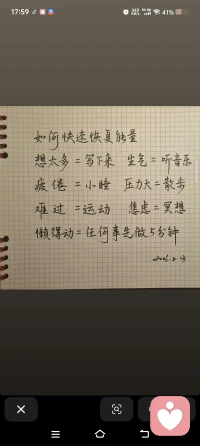 17:59
41%
如何快速恢复能量
想太多=写下来 生气=听音乐
疲倦=小睡 压力大=散步
难过=运动 焦虑=冥想
懒得动=任何事先做5分钟